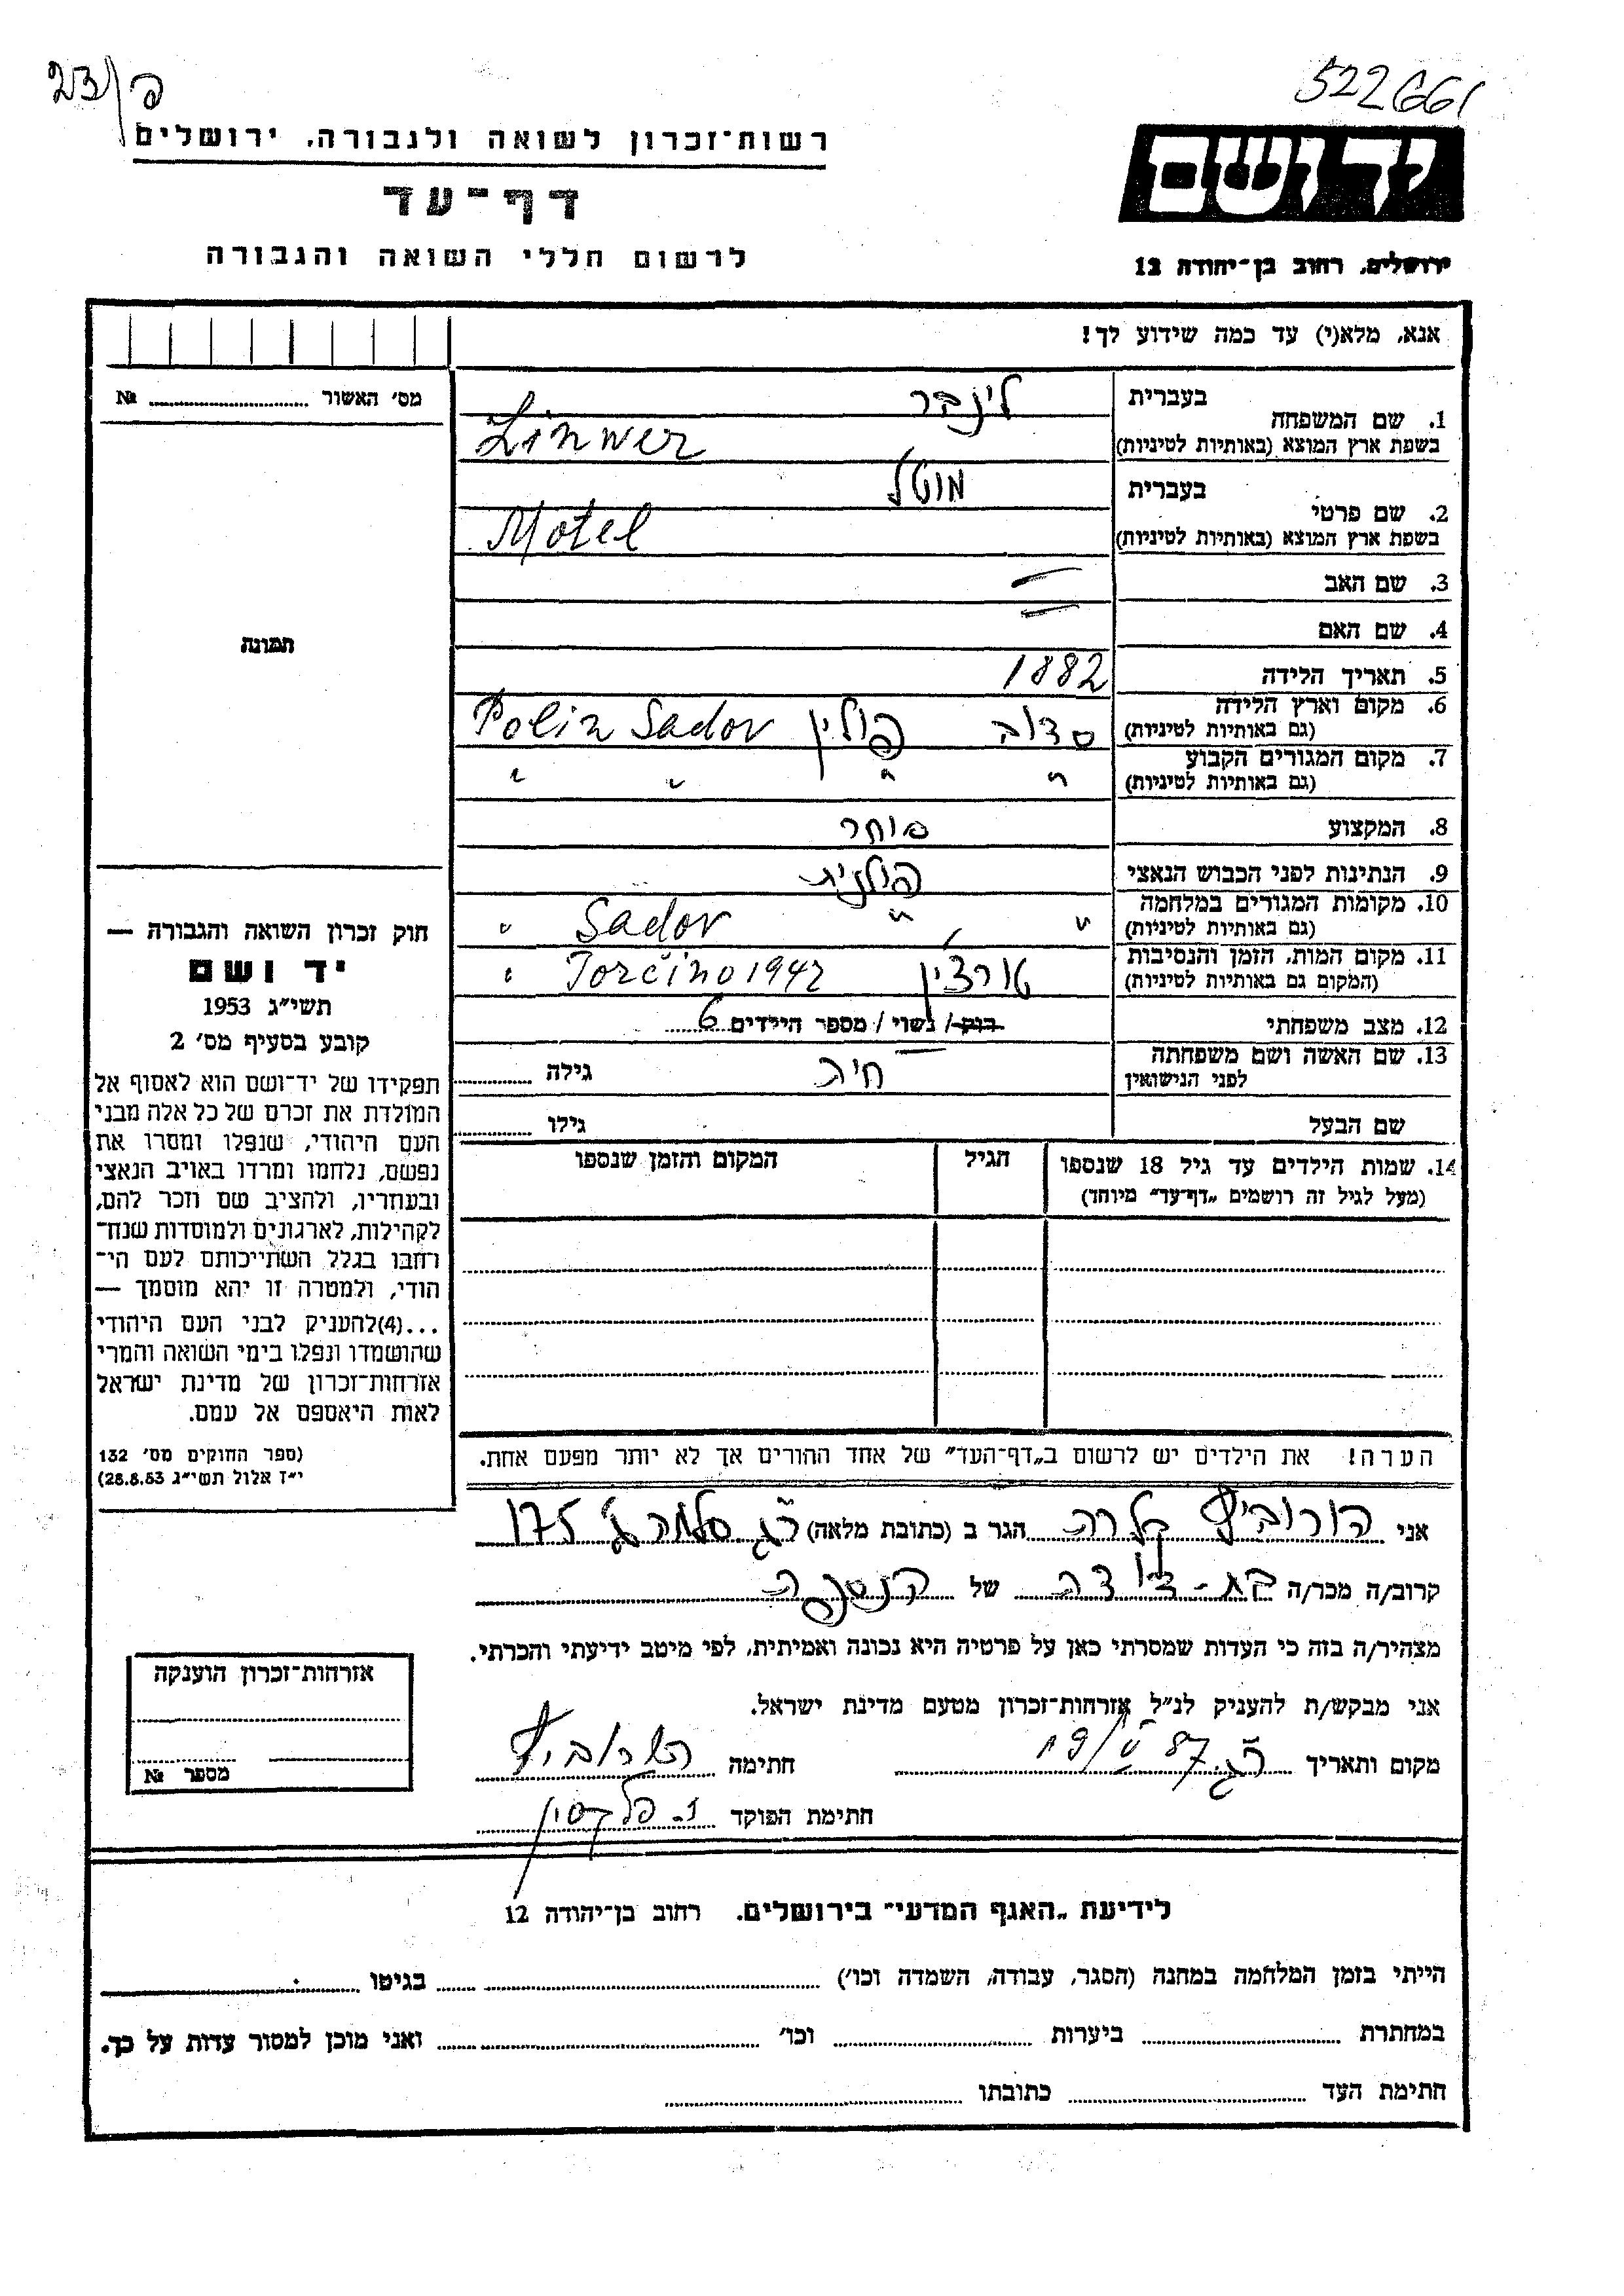 23/פ
522661
רשות-זכרון לשואה ולגבורה, ירושלים
דף-עד
לרשום חללי השואה והגבורה
ידושם
ירושלים, רחוב בן-יהודה 12
אנא, מלא(י) עד כמה שידוע לך!
מס׳ האשור № 
1. שם המשפחה בעברית לינבר
בשפת ארץ המוצא (באותיות לטיניות) Linwer
2. שם פרטי בעברית מוטל
בשפת ארץ המוצא (באותיות לטיניות) Motel
3. שם האב —
4. שם האם —
5. תאריך הלידה 1882
6. מקום וארץ הלידה (גם באותיות לטיניות) סדוב פולין Polin Sadov
7. מקום המגורים הקבוע (גם באותיות לטיניות) " " " "
8. המקצוע סוחר
9. הנתינות לפני הכבוש הנאצי פולנית
10. מקומות המגורים במלחמה (גם באותיות לטיניות) " " Sadov "
11. מקום המות, הזמן והנסיבות (המקום גם באותיות לטיניות) טורצ'ין Torčino 1942 "
12. מצב משפחתי רוק/ נשוי / מספר הילדים 6
13. שם האשה ושם משפחתה לפני הנישואין חיה גילה
שם הבעל גילו
14. שמות הילדים עד גיל 18 שנספו הגיל המקום והזמן שנספו
(מעל לגיל זה רושמים „דף-עד״ מיוחד)
הערה! את הילדים יש לרשום ב„דף-העד״ של אחד ההורים אך לא יותר מפעם אחת.
תמונה
חוק זכרון השואה והגבורה —
יד ושם
תשי״ג 1953
קובע בסעיף מס׳ 2
תפקידו של יד-ושם הוא לאסוף אל
המולדת את זכרם של כל אלה מבני
העם היהודי, שנפלו ומסרו את
נפשם, נלחמו ומרדו באויב הנאצי
ובעוזריו, ולהציב שם וזכר להם,
לקהילות, לארגונים ולמוסדות שנח-
רחבו בגלל השתייכותם לעם הי-
הודי, ולמטרה זו יהא מוסמך —
...(4)להעניק לבני העם היהודי
שהושמדו ונפלו בימי השואה והמרי
אזרחות-זכרון של מדינת ישראל
לאות היאספם אל עמם.
(ספר החוקים מס׳ 132
י״ז אלול תשי״ג 28.8.53)
אני הורוביץ קלרה הגר ב (כתובת מלאה) ר"ג 175
קרוב/ה מכר/ה בת-דודה של הנספה
מצהיר/ה בזה כי העדות שמסרתי כאן על פרטיה היא נכונה ואמיתית, לפי מיטב ידיעתי והכרתי.
אני מבקש/ת להעניק לנ״ל אזרחות-זכרון מטעם מדינת ישראל.
מקום ותאריך ר"ג 19/V 87 חתימה הורוביץ
חתימת הפוקד
אזרחות-זכרון הוענקה
מספר №
לידיעת „האגף המדעי״ בירושלים, רחוב בן-יהודה 12
הייתי בזמן המלחמה במחנה (הסגר, עבודה, השמדה וכו׳) בגיטו
במחתרת ביערות וכו׳ ואני מוכן למסור עדות על כך.
חתימת העד כתובתו